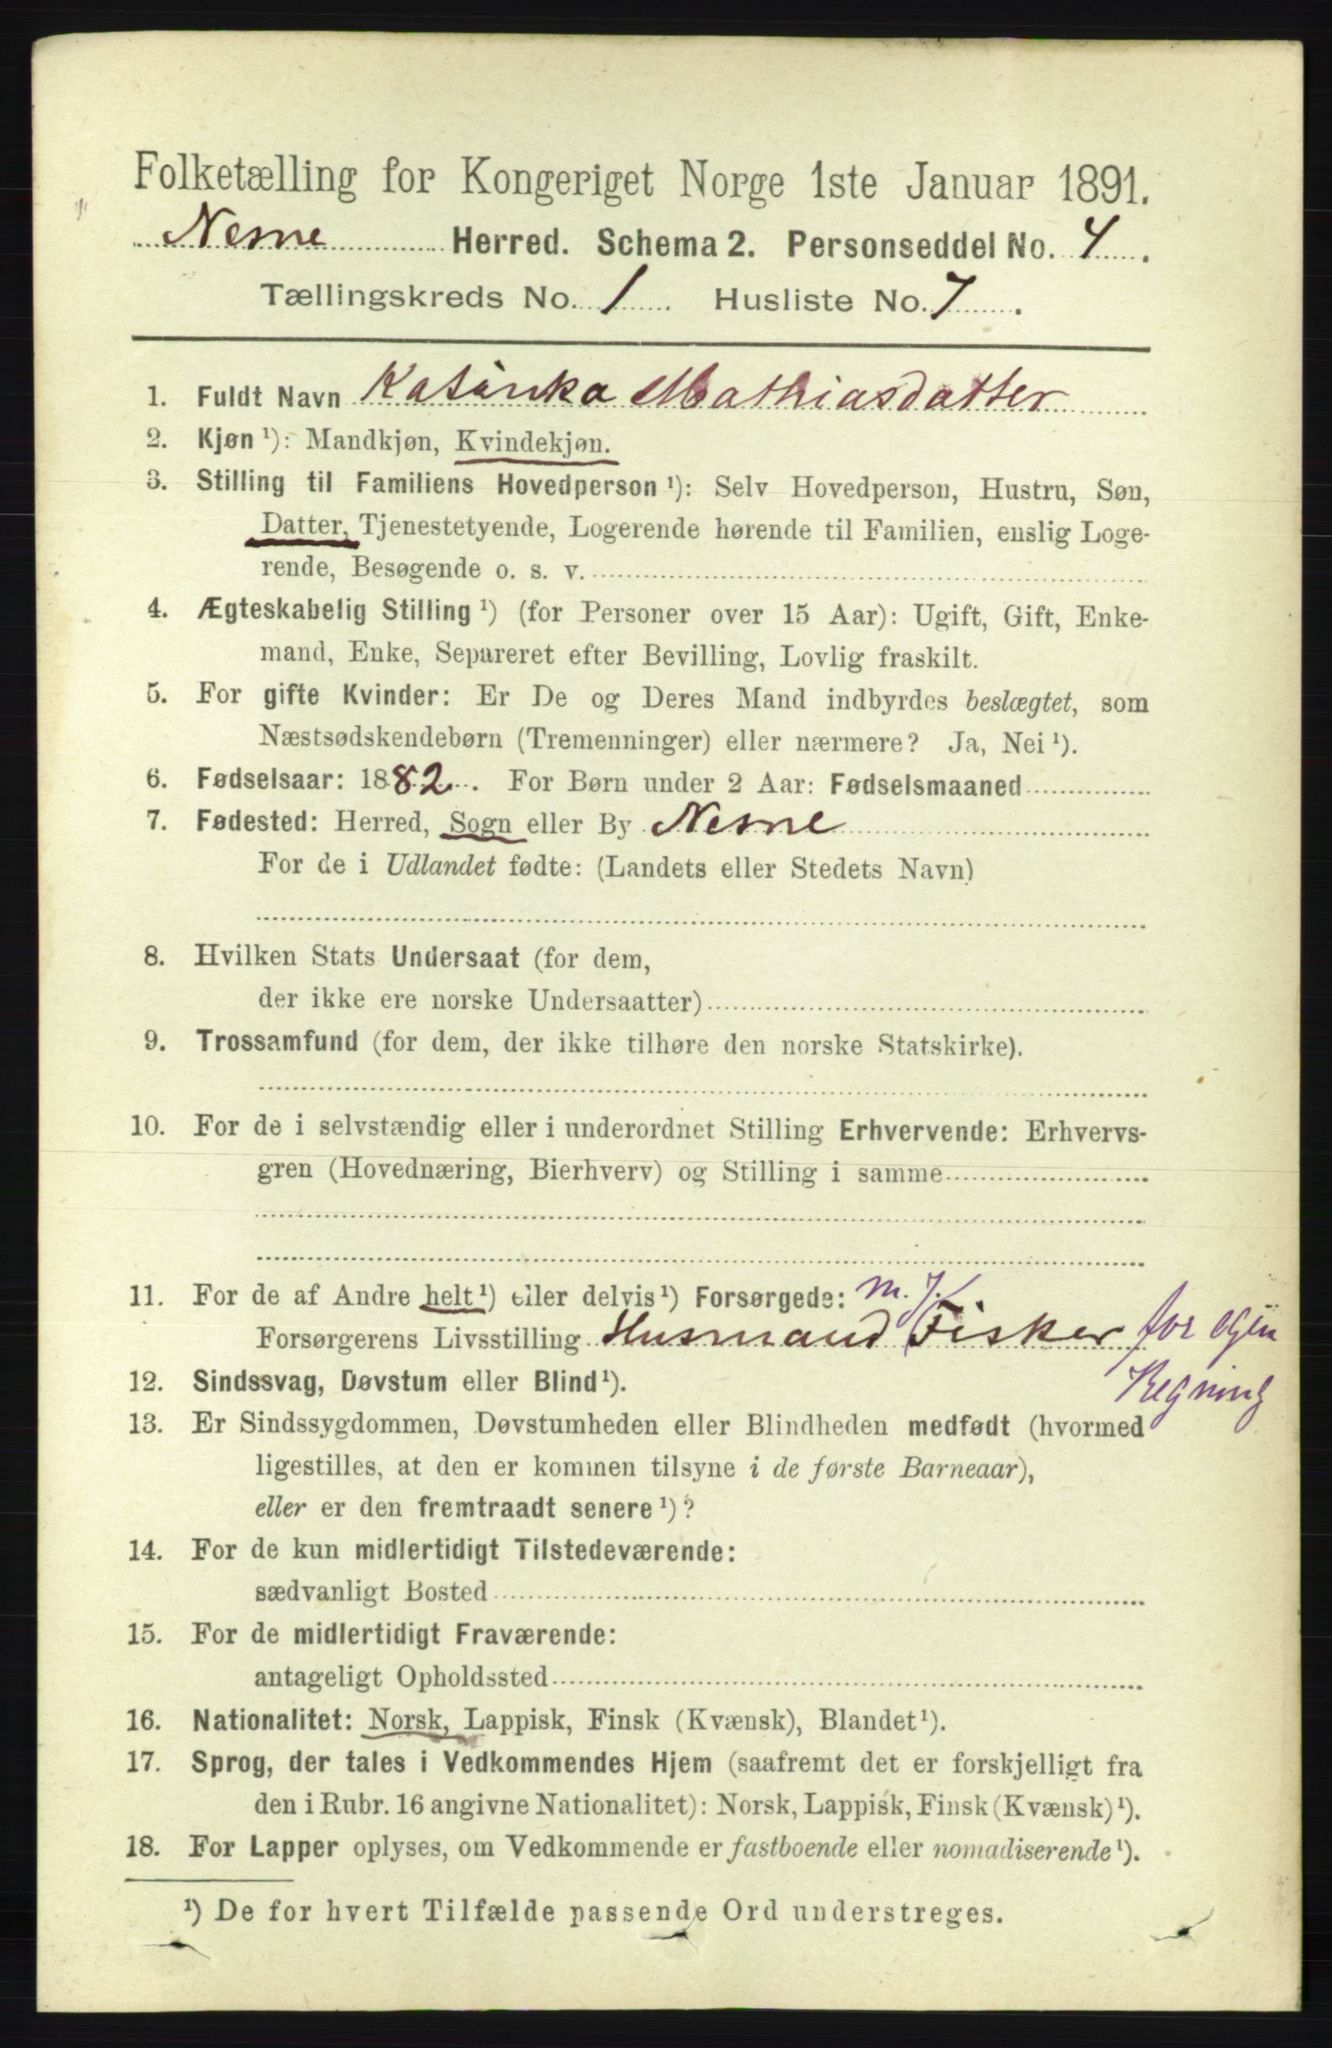 Folketælling for Kongeriget Norge 1ste Januar 1891.
Nesne Herred. Schema 2. Personseddel No. 4.
Tællingskreds No. 1 Husliste No. 7.
1. Fuldt Navn Katinka Mathiasdatter
2. Kjøn ¹): Mandkjøn, Kvindekjøn.
3. Stilling til Familiens Hovedperson ¹): Selv Hovedperson, Hustru, Søn,
Datter, Tjenestetyende, Logerende hørende til Familien, enslig Loge-
rende, Besøgende o. s. v.
4. Ægteskabelig Stilling ¹) (for Personer over 15 Aar): Ugift, Gift, Enke-
mand, Enke, Separeret efter Bevilling, Lovlig fraskilt.
5. For gifte Kvinder: Er De og Deres Mand indbyrdes beslægtet, som
Næstsødskendebørn (Tremenninger) eller nærmere? Ja, Nei ¹).
6. Fødselsaar: 1882. For Børn under 2 Aar: Fødselsmaaned
7. Fødested: Herred, Sogn eller By Nesne
For de i Udlandet fødte: (Landets eller Stedets Navn)
8. Hvilken Stats Undersaat (for dem,
der ikke ere norske Undersaatter)
9. Trossamfund (for dem, der ikke tilhøre den norske Statskirke).
10. For de i selvstændig eller i underordnet Stilling Erhvervende: Erhvervs-
gren (Hovednæring, Bierhverv) og Stilling i samme
11. For de af Andre helt ¹) eller delvis ¹) Forsørgede: m. J.
Forsørgerens Livsstilling Husmand Fisker for egen
Regning
12. Sindssvag, Døvstum eller Blind ¹).
13. Er Sindssygdommen, Døvstumheden eller Blindheden medfødt (hvormed
ligestilles, at den er kommen tilsyne i de første Barneaar),
eller er den fremtraadt senere ¹)?
14. For de kun midlertidigt Tilstedeværende:
sædvanligt Bosted
15. For de midlertidigt Fraværende:
antageligt Opholdssted
16. Nationalitet: Norsk, Lappisk, Finsk (Kvænsk), Blandet ¹).
17. Sprog, der tales i Vedkommendes Hjem (saafremt det er forskjelligt fra
den i Rubr. 16 angivne Nationalitet): Norsk, Lappisk, Finsk (Kvænsk) ¹).
18. For Lapper oplyses, om Vedkommende er fastboende eller nomadiserende ¹).
¹) De for hvert Tilfælde passende Ord understreges.